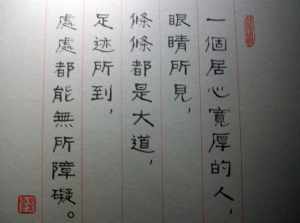 一個居心寬厚的人，
眼睛所見，
條條都是大道，
足迹所到，
處處都能無所障礙。